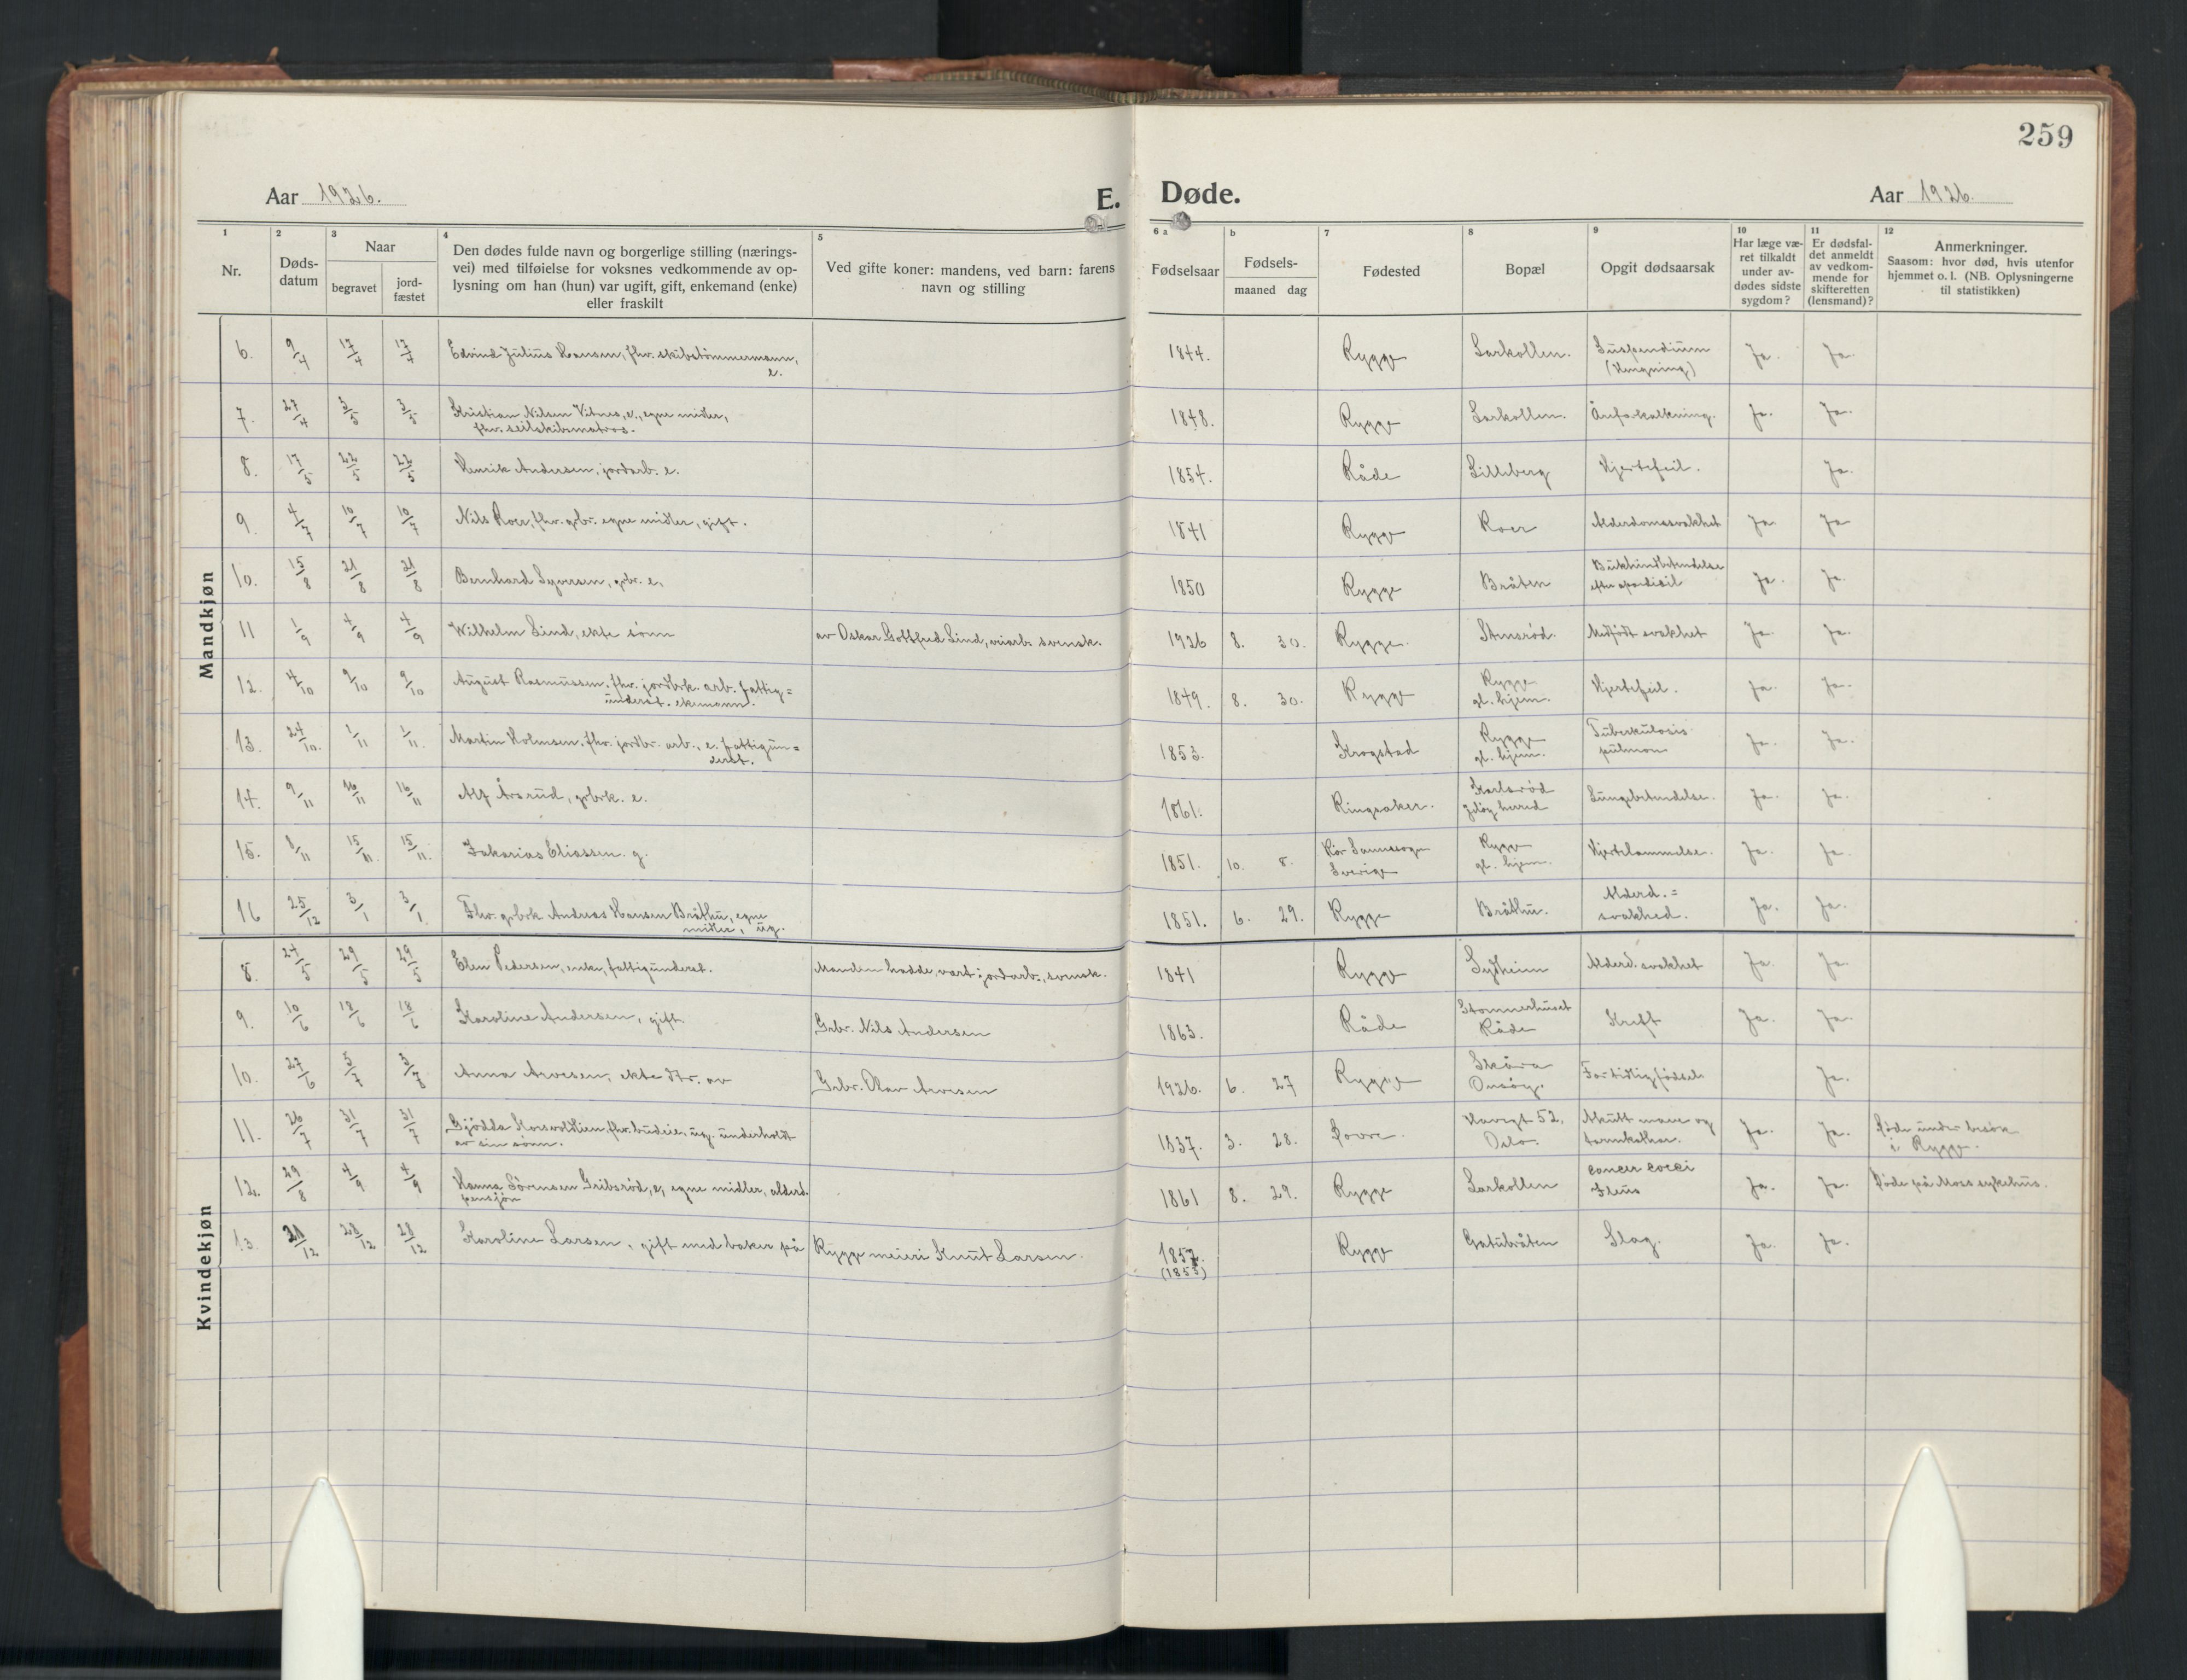 259
Aar 1926.
E. Døde.
Aar 1926.
1 2 3 4 5 6 a b 7 8 9 10 11 12
Nr.
Døds-
datum
Naar
begravet
jord-
fæstet
Den dødes fulde navn og borgerlige stilling (nærings-
vei) med tilføielse for voksnes vedkommende av op-
lysning om han (hun) var ugift, gift, enkemand (enke)
eller fraskilt
Ved gifte koner: mandens, ved barn: farens
navn og stilling
Fødselsaar
Fødsels-
maaned dag
Fødested
Bopæl
Opgit dødsaarsak
Har læge væ-
ret tilkaldt
under av-
dødes sidste
sygdom?
Er dødsfal-
det anmeldt
av vedkom-
mende for
skifteretten
(lensmand)?
Anmerkninger.
Saasom: hvor død, hvis utenfor
hjemmet o. l. (NB. Oplysningerne
til statistikken)
Mandkjøn
6. 9/4 17/4 17/4 Edvind Julius Hansen, fhv. skibstömmermann, e. 1844. Rygge Larkollen. Suspendium (Hengning) Ja. Ja.
7. 27/4 3/5 3/5 Kristian Nilsen Vitnes, e., egne midler, fhv. seilskibsmatros. 1848. Rygge Larkollen. Åreforkalkning. Ja. Ja.
8. 17/5 22/5 22/5 Henrik Andersen, jordarb. e. 1854. Råde Lilleberg Hjertefeil. Ja.
9. 4/7 10/7 10/7 Nils Roer, fhv. grbr. egne midler, gift. 1841 Rygge Roer Alderdomssvakhet Ja Ja
10. 15/8 21/8 21/8 Bernhard Syversen, grbr. e. 1850 Rygge Bråten Bukhindbetendelse Ja. Ja.
11 1/9 4/9 4/9 Wilhelm Lind, ekte sönn av Oskar Gottfred Lind, svensk. 1926 8. 30. Rygge. Stensröd. Medfödt svakhet Ja. Ja.
12. 4/10 9/10 9/10 August Rasmussen, fhv. jordbrk. arb. fattig= underst. ekemann. 1849. 8. 30. Rygge Rygge gl. hjem. Hjertefeil. Ja. Ja.
13. 24/10. 1/11 1/11. Martin Holmsen, fhv. jordbr. arb., e. fattigun= derst. 1853. Krogstad Rygge gl. hjem. Tuberkulosis pulmon Ja. Ja.
14. 9/11 16/11 16/11 Alf Årsrud, grbrk. e. 1861. Ringsaker. Karlsröd Jelöy herred Lungebetendelse. Ja. Ja.
15. 8/11 15/11. 15/11. Zakarias Eliassen. g. 1851. 10. 8. Sannesogn Sverige Rygge gl. hjem. Hjertelammelse. Ja. Ja.
16 25/12 3/1 3/1 Fhv. grbrk. Andreas Hansen Bråthu, egne midler, ug. 1851. 6. 29. Rygge Bråthu. Alderd.= svakhed. Ja. Ja.
Kvindekjøn
8. 24/5 29/5 29/5 Elen Pedersen, enke, fattigunderst. Manden hadde vært jordarb., svensk. 1841 Rygge Sydheim Alderd. svakhet Ja. Ja.
9. 10/6 17/6 17/6 Karoline Andersen, gift. Grbr. Nils Andersen 1863. Råde Råde Kreft Ja. Ja.
10. 27/6 3/7 3/7 Anna Arvesen, ekte dtr. av Grbr. Olav Arvesen 1926. 6. 27 Rygge Skåra Onsöy. For tidlig födsel. Ja.
11. 26/7 31/7 31/7 fhv. budeie, ug. underholdt av sin sönn. 1837. 3. 28. Dovre. 52, Oslo. Akutt mave og tarmkathar. Ja. Ja. Døde under besök i Rygge.
12. 29/8 4/9 4/9 Hanna Sörensen Gribsröd, e, egne midler, alderd. pensjon 1861 8. 29. Rygge Larkollen cancer coeci Ileus Ja. Ja. Døde på Moss sykehus.
13. 21/12 28/12 28/12 Karoline Larsen, gift med baker på Rygge meieri Knut Larsen. 1857. (1853) Rygge Gatubråten Slag. Ja. Ja.